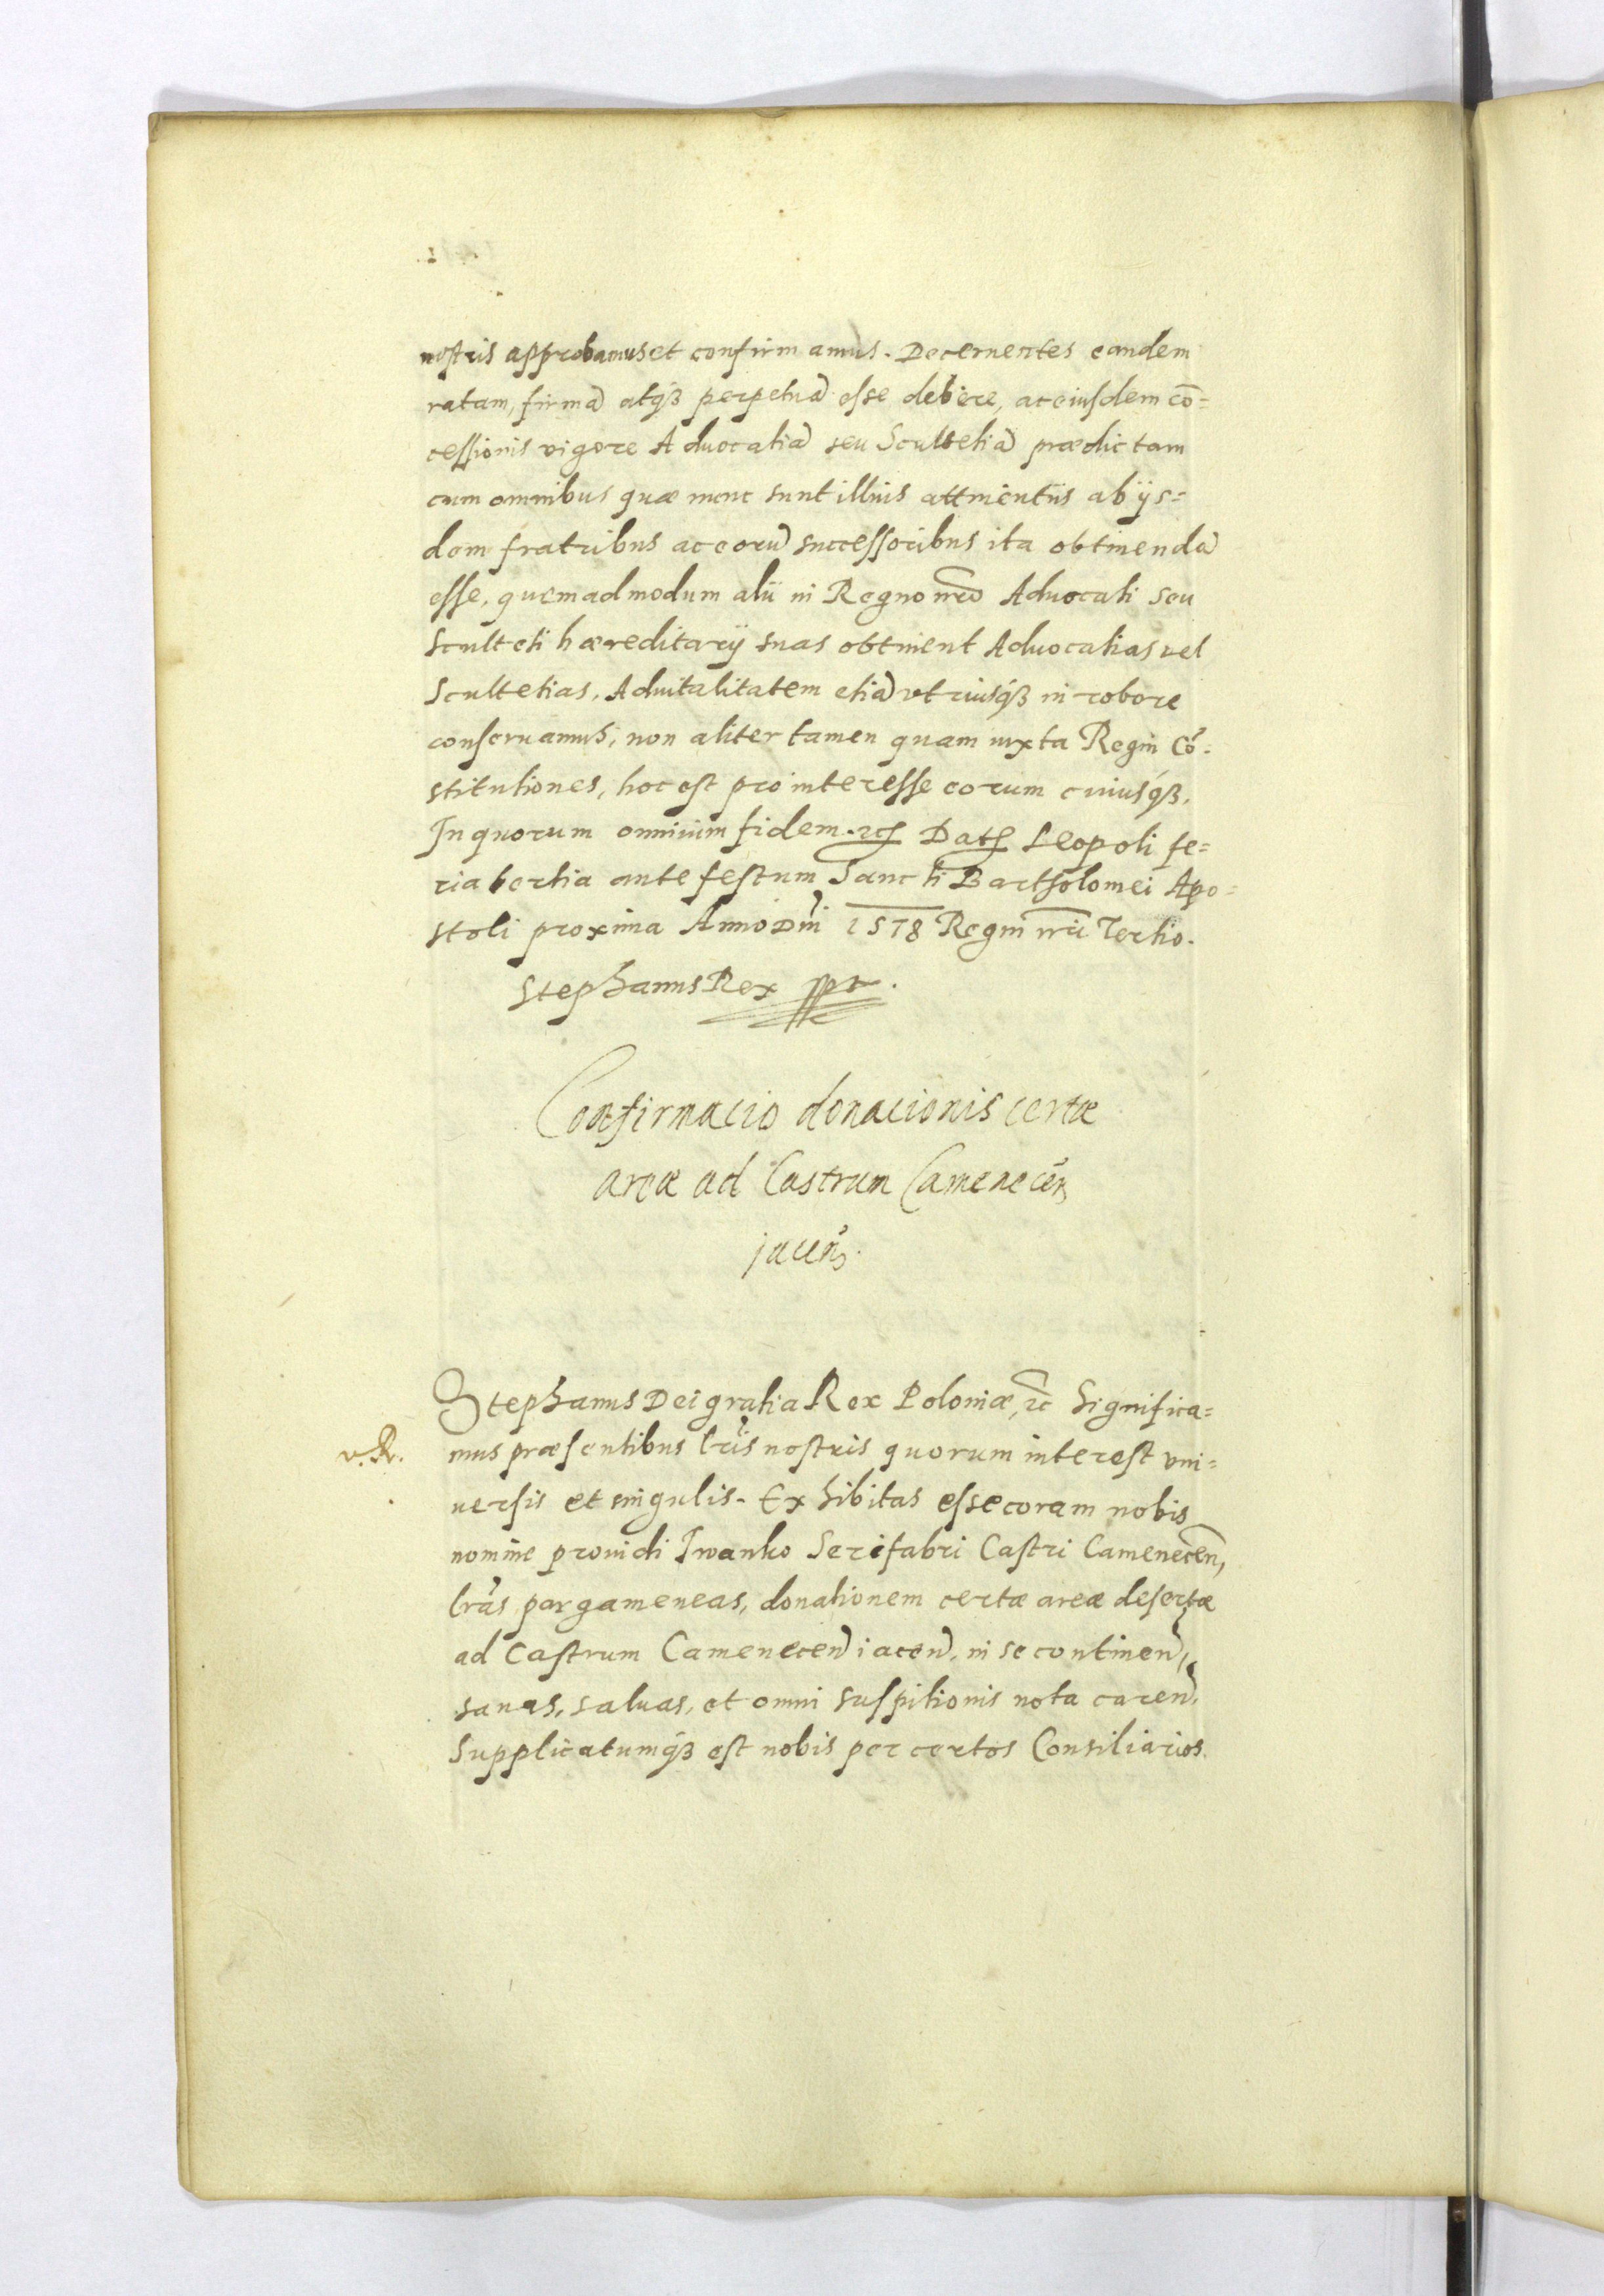 nostris approbamus et confirmamus. Decernentes eandem
ratam, firmã atq́ꝫ perpetuã esse debere, ac eiusdem cõ=
cessionis vigore Aduocatiã seu Scultetiã prædictam
cum omnibus quæ nunc sunt illius attinentiis ab ijs=
dem fratribus ac eorũ successoribus ita obtinendã
esse, quemadmodum alii in Regno nr̃o Aduocati seu
Sculteti hæreditarij suas obtinent Aduocatias vel
Scultetias. Aduitalitatem etiã vtriusq́ꝫ in robore
conseruamus, non aliter tamen quam iuxta Regni Cõ=
stitutiones, hoc est pro interesse eorum cuiusq́ꝫ.
In quorum omnium fidem. ꝛc̃ Dat̃ Leopoli fe=
ria tertia ante festum Sancti Bartholomei Apo=
stoli proxima Anno Dñi 1578 Regni nr̃i Tertio.
Stephanus Rex sst.
Confirmacio donacionis certæ
areæ ad Castrum Cameneceñ
jaceñ.
Stephanus Dei gratia Rex Poloniæ, ꝛc̃ Significa=
v. R.
mus præsentibus lr̃is nostris quorum interest vni=
uersis et singulis. Exhibitas esse coram nobis
nomine prouidi Iwanko Serifabri Castri Cameneceñ,
lr̃as pargameneas, donationem certæ areæ desertæ
ad Castrum Cameneceñ iaceñ, in se contineñ,
sanas, saluas, et omni suspitionis nota careñ.
Supplicatumq́ꝫ est nobis per certos Consiliarios